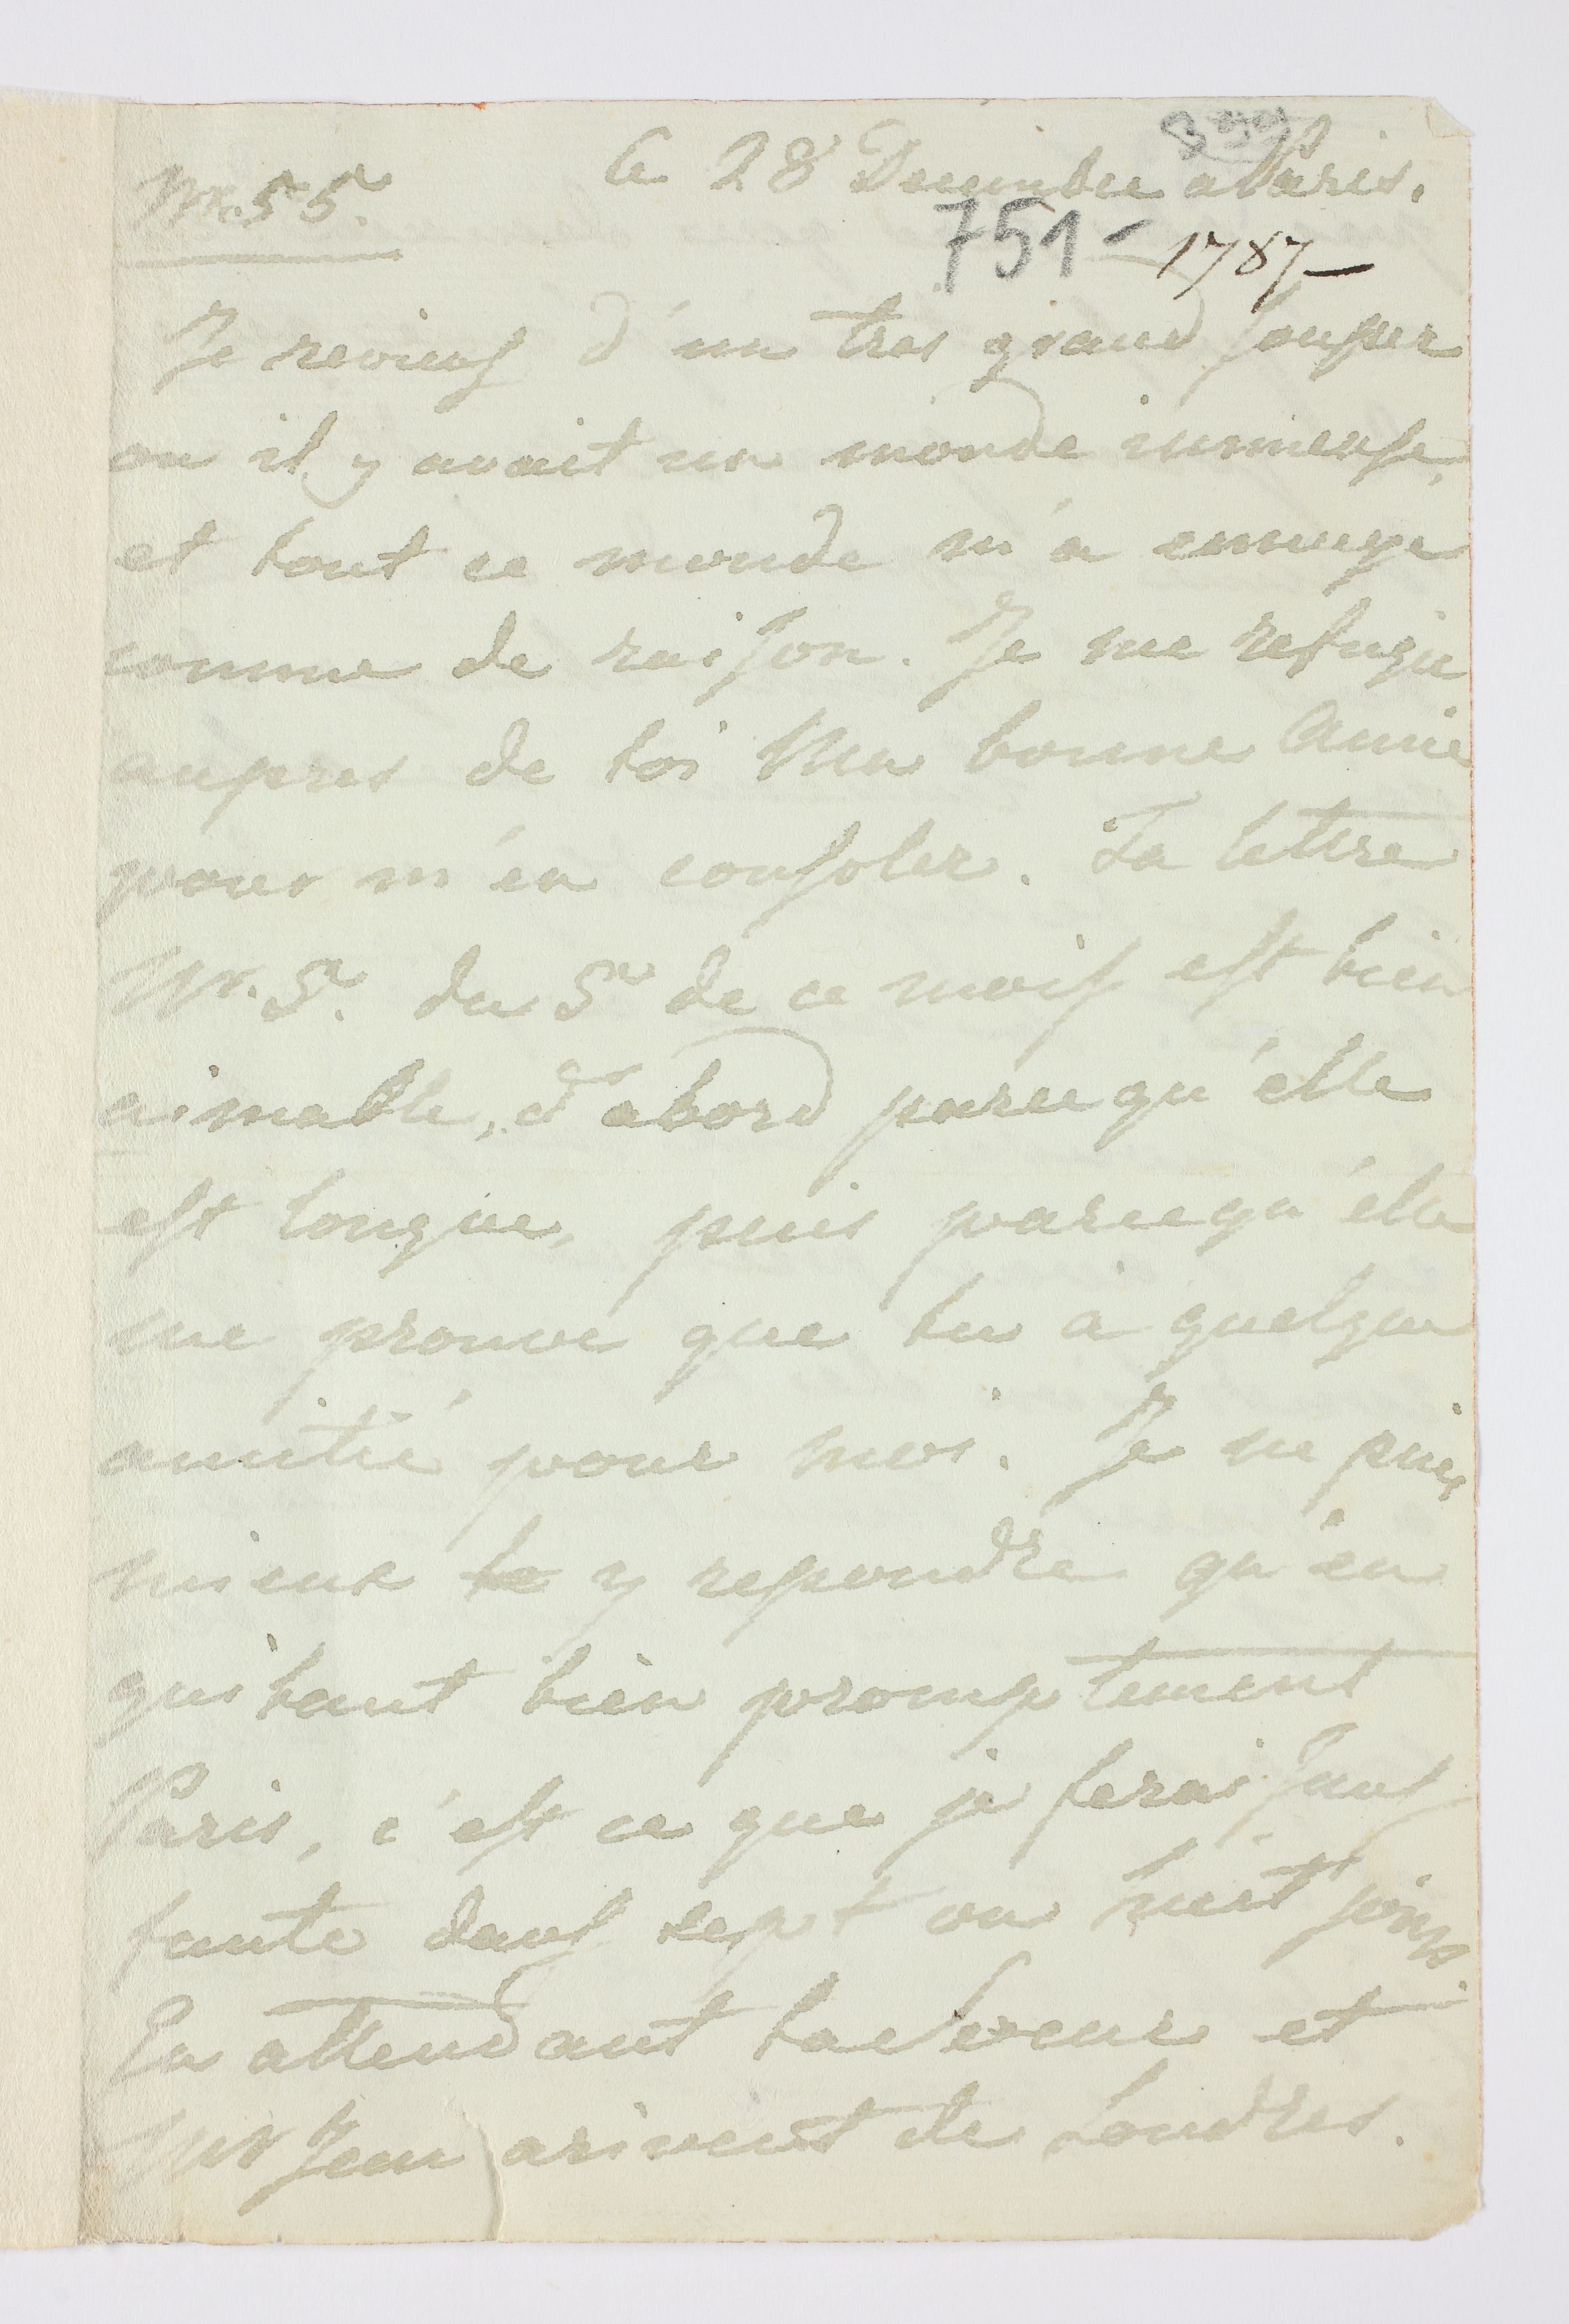 Nr. 55.
Ce 28 Decembre a Paris.
751 - 1787 -
Je reviens d'un tres grand souper
ou il y avait un monde immense,
et tout ce monde m'a ennuyé
comme de raison. Je me refugie
aupres de toi Ma bonne Amie
pour m'en consoler. Ta lettre
Nr. 5. du 5 de ce mois est bien
aimable, d'abord parce qu'elle
est longue, puis parce qu'elle
me prouve que tu à quelque
amitié pour moi. Je ne puis
mieux y repondre qu'en
quitant bien promptement
Paris, c'est ce que je ferai sans
faute dans sept ou huit jours.
En attendant ta soeur et
arivent de Londres.